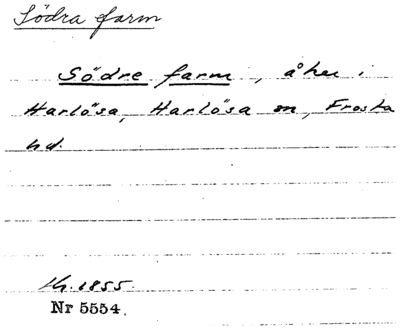 Södra farm
Södre farm, åker i
Harlösa, Harlösa sn, Frosta
hd.
1855.
Nr 5554.